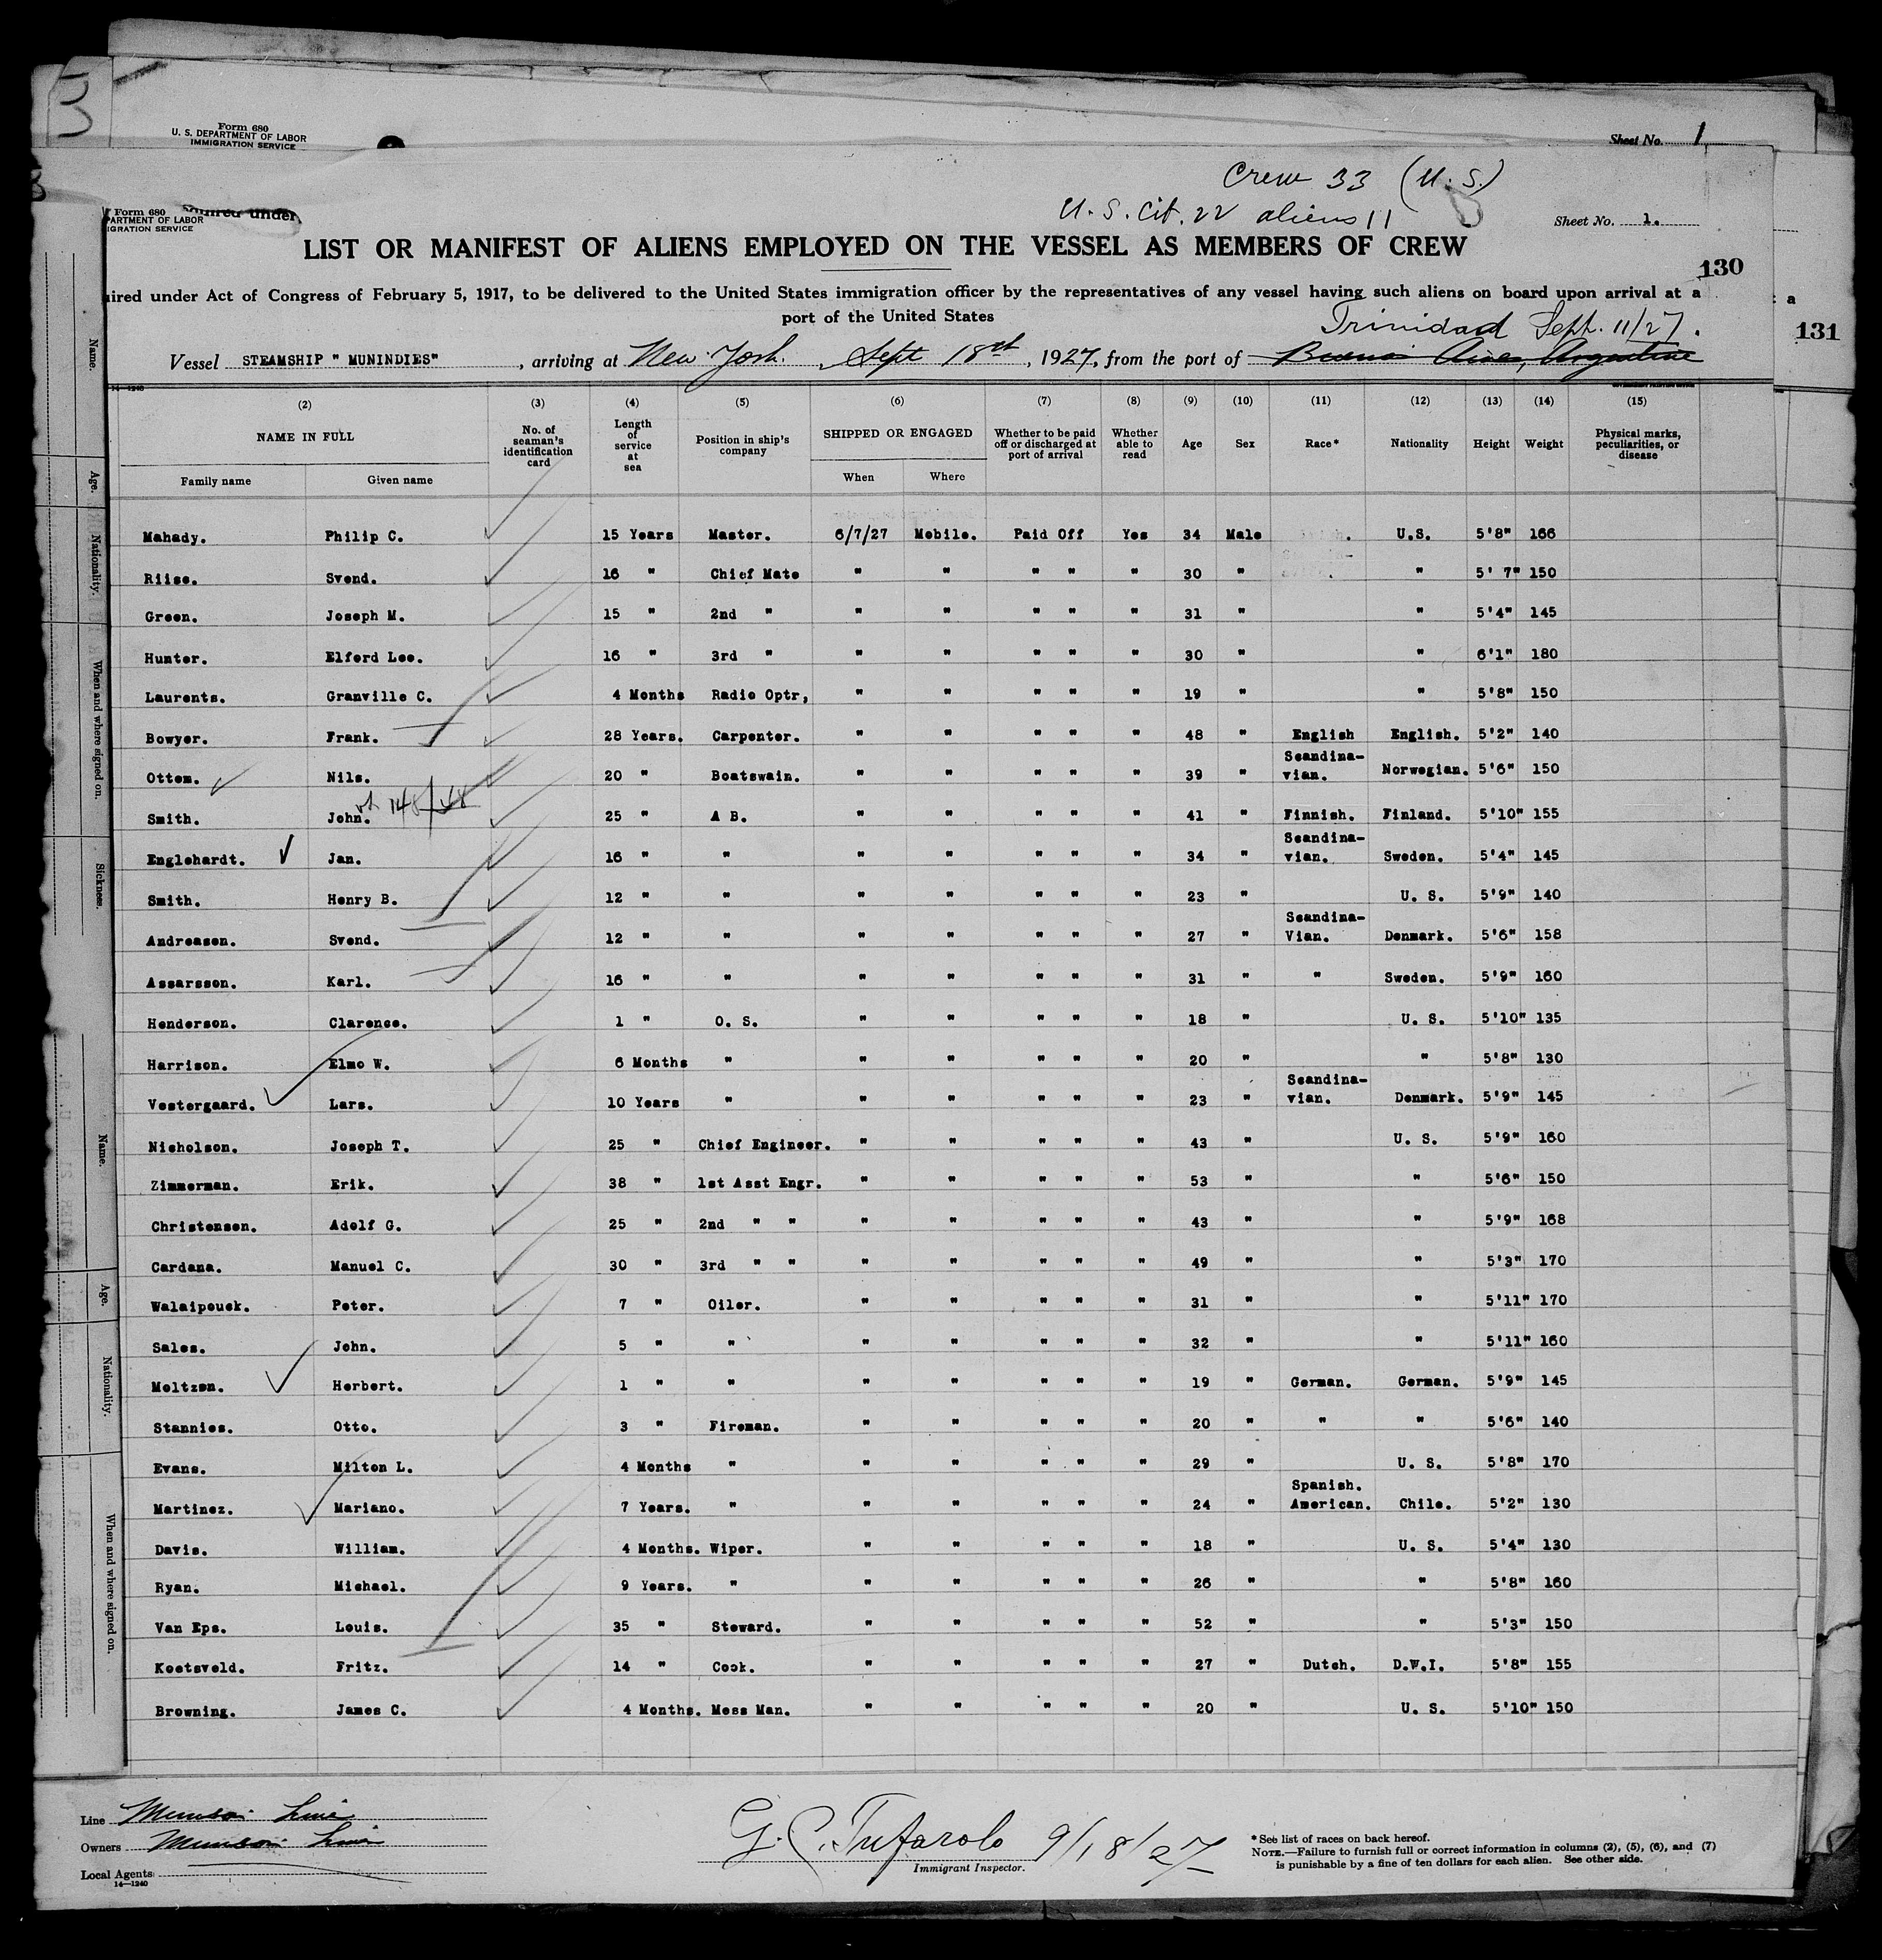 Form 680
U. S. DEPARTMENT OF LABOR
IMMIGRATION SERVICE
Sheet No. 1
Crew 33 (U. S.)
U. S. cit. 22 aliens 11
Form 680
PARTMENT OF LABOR
IGRATION SERVICE
Sheet No. 1.
LIST OR MANIFEST OF ALIENS EMPLOYED ON THE VESSEL AS MEMBERS OF CREW
130
ired under Act of Congress of February 5, 1917, to be delivered to the United States immigration officer by the representatives of any vessel having such aliens on board upon arrival at a
port of the United States
131
Trinidad Sept. 11/27.
Vessel STEAMSHIP " MUNINDIES" , arriving at New York. , Sept 18st , 1927, from the port of Buenos Aires, Argentine
(2) (3) (4) (5) (6) (7) (8) (9) (10) (11) (12) (13) (14) (15)
NAME IN FULL No. of seaman's identification card Length of service at sea Position in ship's company SHIPPED OR ENGAGED Whether to be paid off or discharged at port of arrival Whether able to read Age Sex Race* Nationality Height Weight Physical marks, peculiarities, or disease
Family name Given name When Where
Mahady. Philip C. 15 Years Master. 6/7/27 Mobile. Paid Off Yes 34 Male U.S. 5'8" 166
Riise. Svend. 16 " Chief Mate " " " " " 30 " " 5' 7" 150
Green. Joseph M. 15 " 2nd " " " " " " 31 " " 5'4" 145
Hunter. Elford Lee. 16 " 3rd " " " " " " 30 " " 6'1" 180
Laurents. Granville C. 4 Months Radio Optr, " " " " " 19 " " 5'8" 150
Bowyer. Frank. 28 Years. Carpenter. " " " " " 48 " English English. 5'2" 140
Ottem. Nils. 20 " Boatswain. " " " " " 39 " Scandina-vian. Norwegian. 5'6" 150
Smith. John. 25 " A B. " " " " " 41 " Finnish. Finland. 5'10" 155
Englehardt. Jan. 16 " " " " " " " 34 " Scandina-vian. Sweden. 5'4" 145
Smith. Henry B. 12 " " " " " " " 23 " U. S. 5'9" 140
Andreasen. Svend. 12 " " " " " " " 27 " Scandina-Vian. Denmark. 5'6" 158
Assarsson. Karl. 16 " " " " " " " 31 " " Sweden. 5'9" 160
Henderson. Clarence. 1 " O. S. " " " " " 18 " U. S. 5'10" 135
Harrison. Elmo W. 6 Months " " " " " " 20 " " 5'8" 130
Vestergaard. Lars. 10 Years " " " " " " 23 " Scandina-vian. Denmark. 5'9" 145
Nicholson. Joseph T. 25 " Chief Engineer. " " " " " 43 " U. S. 5'9" 160
Zimmerman. Erik. 38 " 1st Asst Engr. " " " " " 53 " " 5'6" 150
Christensen. Adolf G. 25 " 2nd " " " " " " " 43 " " 5'9" 168
Cardana. Manuel C. 30 " 3rd " " " " " " " 49 " " 5'3" 170
Walaipouck. Peter. 7 " Oiler. " " " " " 31 " " 5'11" 170
Sales. John. 5 " " " " " " " 32 " " 5'11" 160
Moltzen. Herbert. 1 " " " " " " " 19 " German. German. 5'9" 145
Stannies. Otto. 3 " Fireman. " " " " " 20 " " " 5'6" 140
Evans. Milton L. 4 Months " " " " " " 29 " U. S. 5'8" 170
Martinez. Mariano. 7 Years. " " " " " " 24 " Spanish. American. Chile. 5'2" 130
Davis. William. 4 Months. Wiper. " " " " " 18 " U. S. 5'4" 130
Ryan. Michael. 9 Years. " " " " " " 26 " " 5'8" 160
Van Eps. Louis. 35 " Steward. " " " " " 52 " " 5'3" 150
Koetsveld. Fritz. 14 " Cook. " " " " " 27 " Dutch. D.W.I. 5'8" 155
Browning. James C. 4 Months. Mess Man. " " " " " 20 " U. S. 5'10" 150
Line Munson Line
Owners Munson Line
Local Agents
14—1240
G. C. Tufarolo 9/18/27
Immigrant Inspector.
*See list of races on back hereof.
NOTE.—Failure to furnish full or correct information in columns (2), (5), (6), and (7)
is punishable by a fine of ten dollars for each alien. See other side.
Name.
Age.
Nationality.
When and where signed on.
Sickness.
Name.
Age.
Nationality.
When and where signed on.